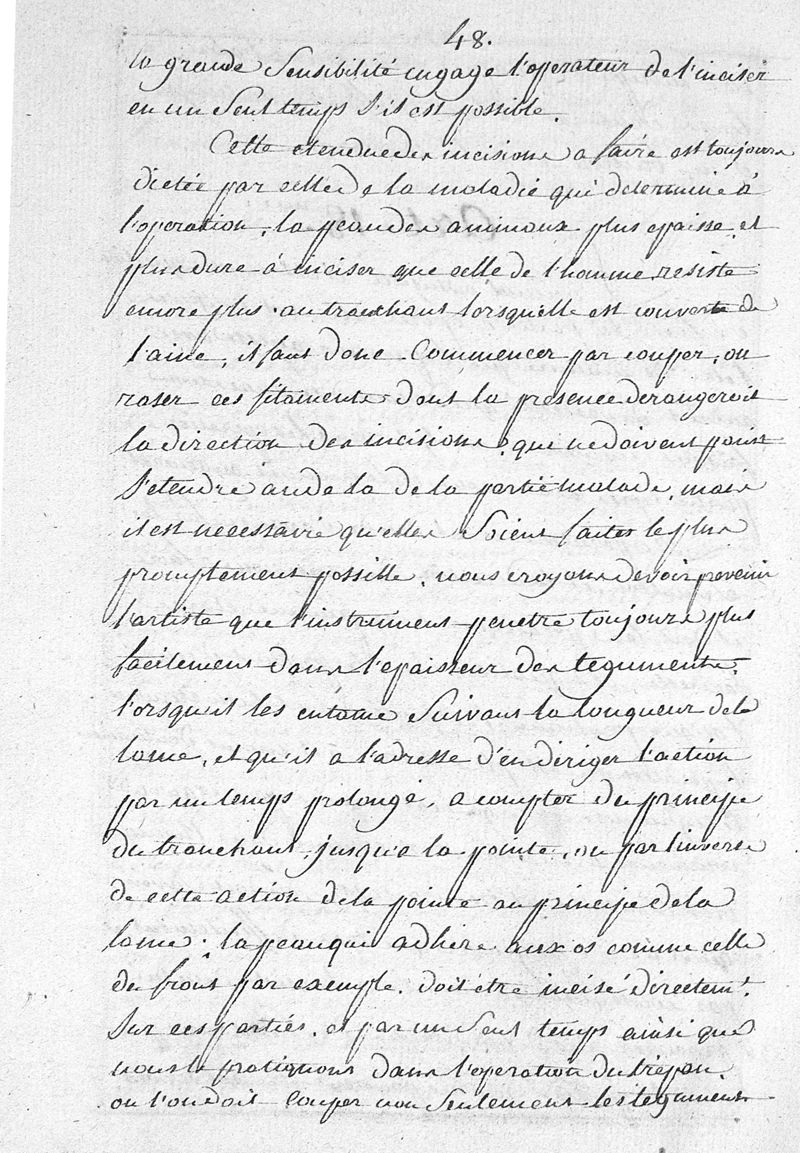 48.
la grande Sensibilité engage l'operateur de l'inciser
en un Seul temps S'il est possible.
Cette etendue des incisions a faire est toujours
dictée par celle de la maladie qui determine à
l'operation, la peau des animaux plus epaisse, et
plus dure à inciser que celle de l'homme resiste
encore plus au tranchant lorsqu'elle est couverte de
laine, il faut donc Commencer par couper, ou
raser ces filaments dont la presence derangeroit
la direction des incisions, que ne doivent point
S'etendre au dela de la partie malade, mais
il est necessaire qu'elles Soient faites le plus
promptement possille, nous croyons devoir prevenir
l'artiste que l'instrument penetre toujours plus
facilement dans l'epaisseur des teguments.
lorsqu'il les entame Suivant la longueur de la
lame, et qu'il a l'adresse d'en diriger l'action
par un temps prolongé, a compter du principe
du tranchant, jusqu'a la pointe, ou par l'inverse
de cette action de la pointe au principe de la
lame. la peau qui adhère aux os comme celle
du front par exemple. doit être incisé directemt.
Sur ces parties, et par un Seul temps ainsi que
nous le pratiquons dans l'operation du trépan,
ou l'on doit Couper non Seulement les tegument